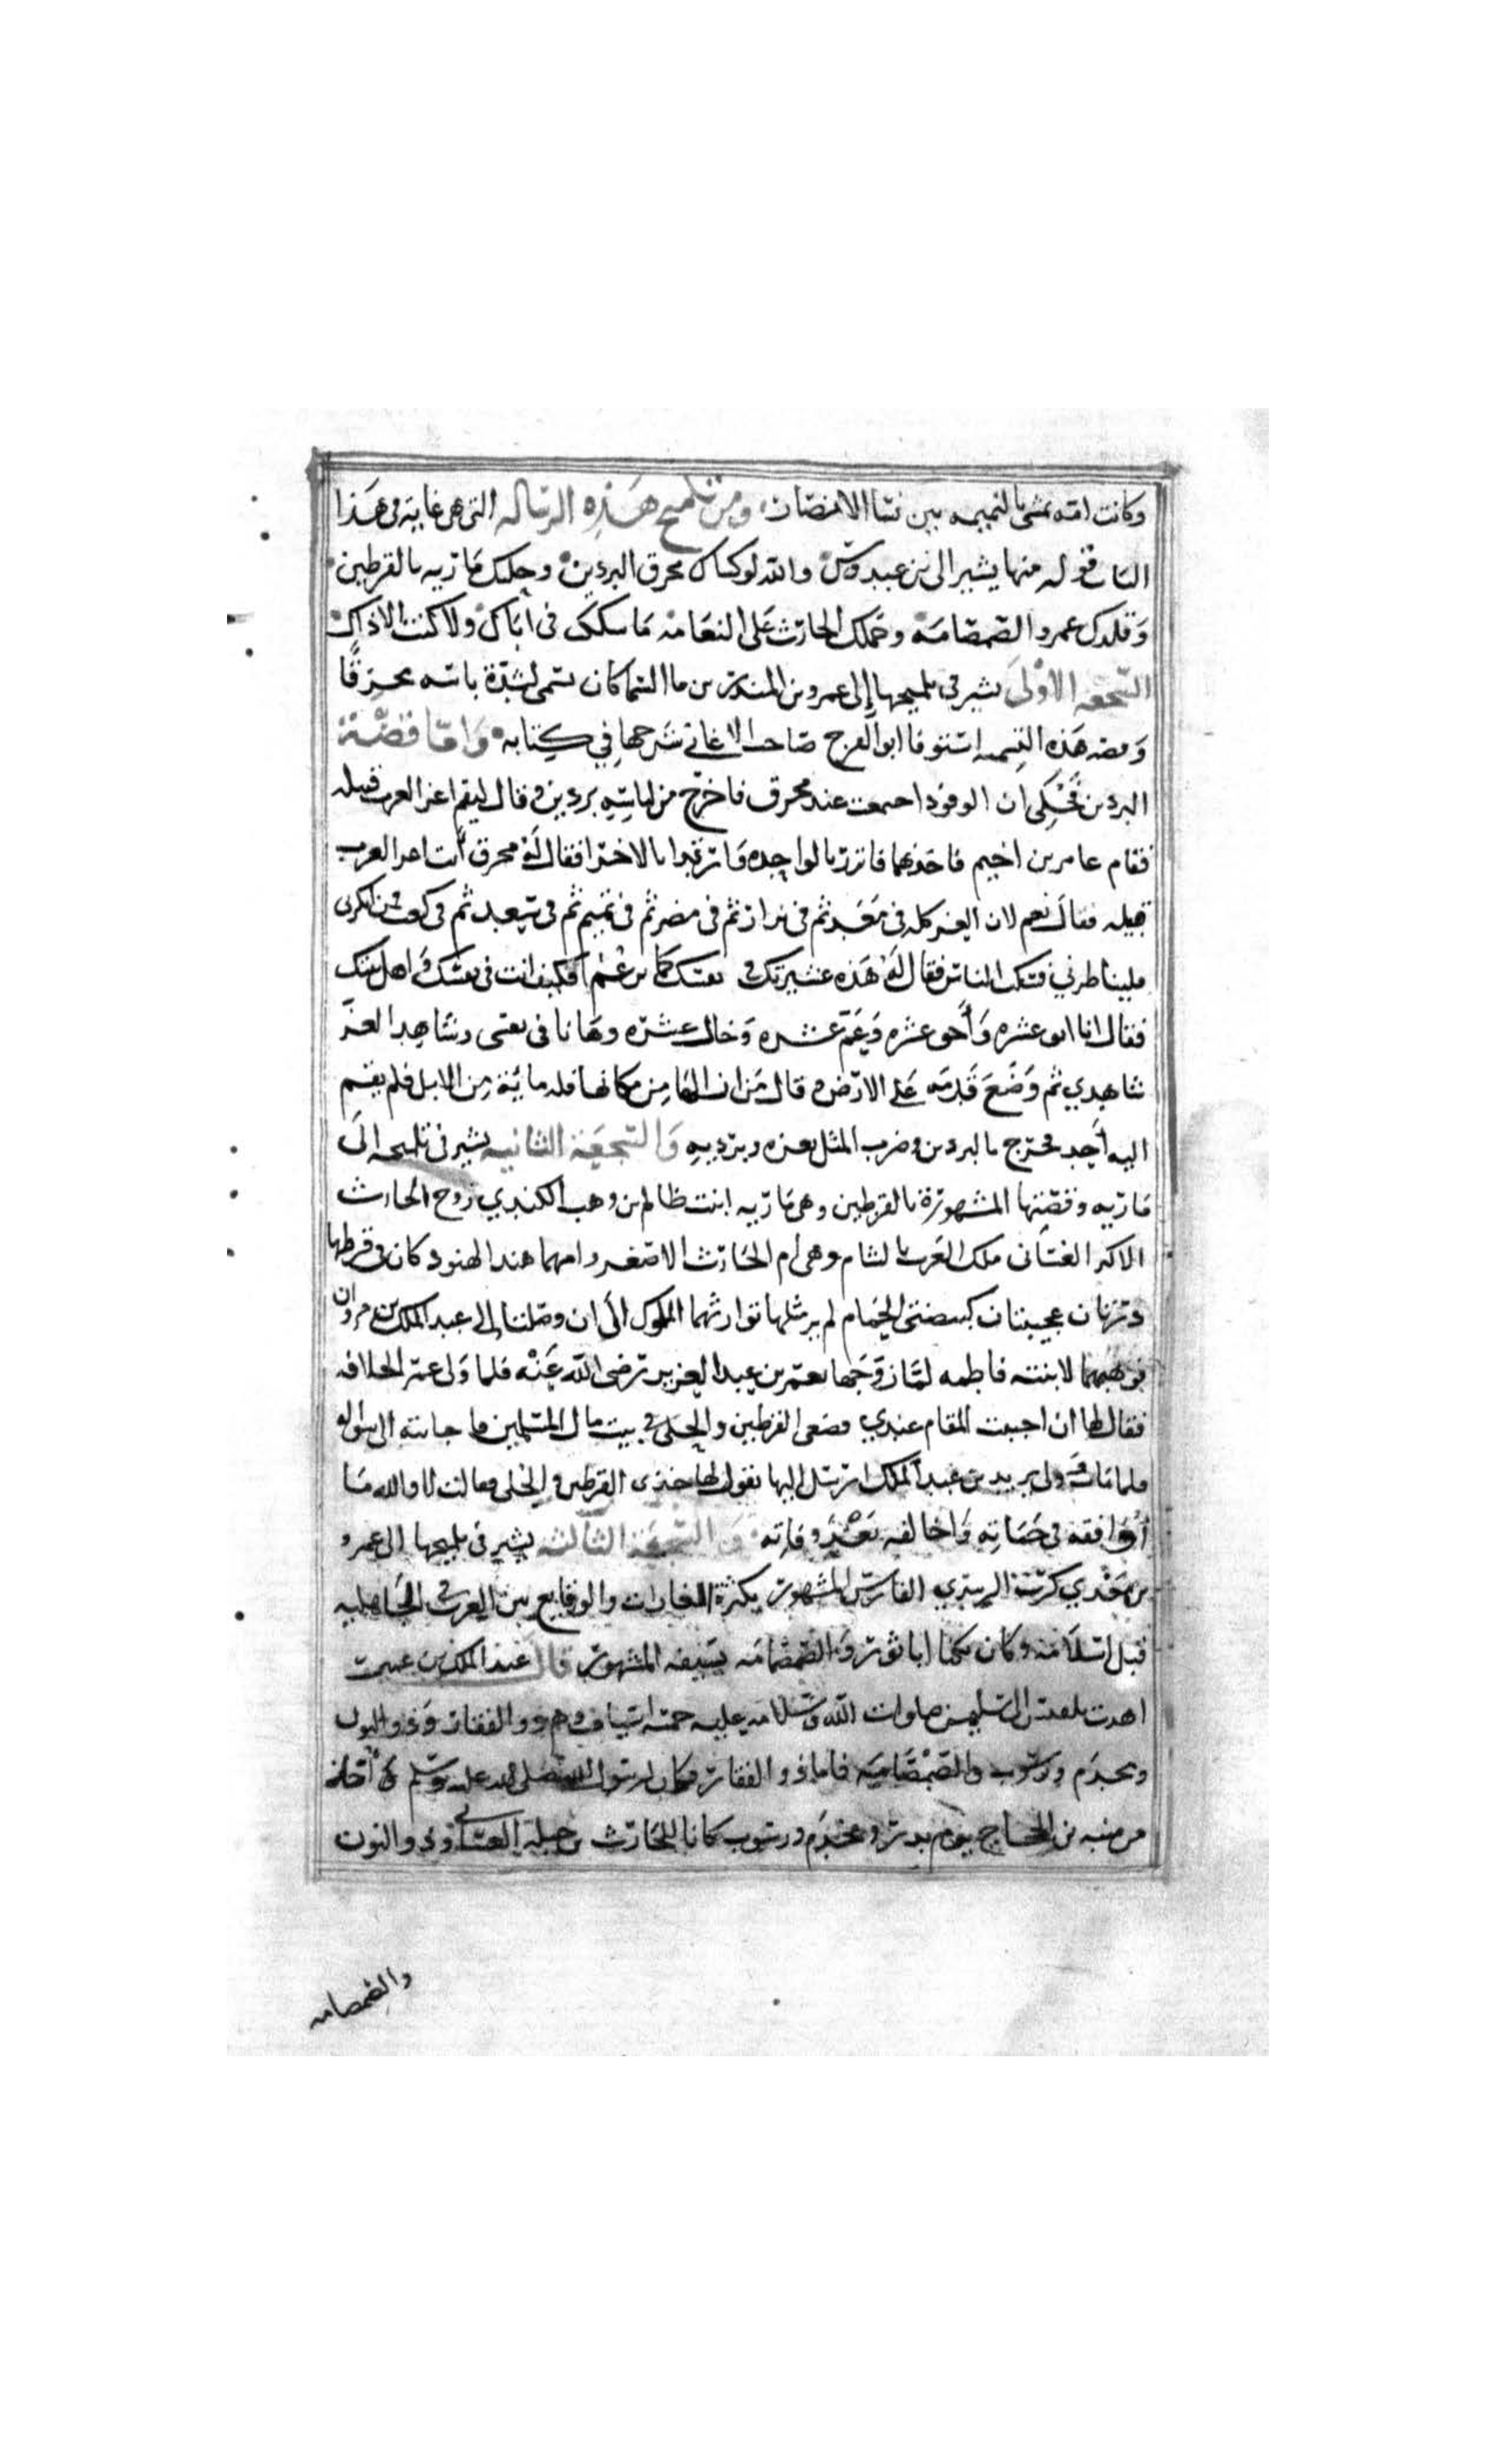 وكانت امته تمشي بالنميمه بين نسا الانصار ومن تلميح هذه الرساله التى هى غاية فى هذا
الباب قوله منها يشير الى بن عبدوس والله لو كساك محرق البردين وحلتك مارية بالقرطين
وقلدك عمرو الصمصامة وحملك الحارث على النعامة ما شككت فى اباك ولا كنت الا ذاك
السجعه الاولى يشير فى تلميحها إلى عمرو بن المنذر بن ما السما كان يسمى لشدة باسه محرقا
وقصه هذه التسميه استوفا ابو الفرج صاحب الاغاني شرحها في كتابه وامّا قصّة
البردين فحُكي ان الوفود اجتمعت عند محرق فاخرج من لباسه بردين وقال ليقم اعز العرب قبيله
فقام عامر بن احيم فاخذهما فاتزر بالواحده وارتدا بالاخرا فقال له محرق أنت اعز العرب
قبيله فقال نعم لان العز كله فى معد ثم فى نزار ثم فى مضر ثم فى تميم ثم فى سعد ثم فى كعب فمن انكر
فليناظرني فسكت الناس فقال له هذه عشيرتك كما تزعم فكيف انت فى نفسك وأهل بيتك
فقال انا ابو عشره وأخو عشره وعَمّ عشره وخال عشره وها نا فى نفسى وشاهد العزّ
شاهدي ثم وضع قدمه على الارض وقال من ازالها من مكانها فله مائة من الابل فلم يقم
اليه أحد فخرج بالبردين وضرب المثل بعزه وبرديه والسجعة الثانيه يشير فى تلميحه الى
ماريه وقصتها المشهورة بالقرطين وهى ماريه ابنت ظالم بن وهب الكندي زوج الحارث
الاكبر الغسانى ملك العرب بالشام وهى أم الحارث الاصغر وامهما هند الهنود كان فى قرطها
درتان عجيبتان كبيضتى الحمام لم ير مثلها توارثهما الملوك الى ان وصلتا إلى عبد الملك بن مروان
فوهبهما لابنته فاطمه لمّا زوّجها بعمر بن عبد العزيز رضى الله عنه فلما ولى عمر الخلافه
فقال لها ان احببت المقام عندي فضعى القرطين والحلى فى بيت مال المسلمين فاجابته الى سواله
فلما مات وولى يزيد بن عبد الملك ارسل اليها يقول لها خذى القرطين والحلى فقالت لا والله ما
أوافقه فى حياته واخالفه بعد وفاته والسجعة الثالثه يشير فى تلميحها الى عمرو
بن معدي كرب الزبيدي الفارس المشهور بكثرة الغارات والوقايع بين العرب فى الجاهليه
قبل اسلامه وكان يكنا ابا ثور والصمصامه سيفه المشهور قال عبد الملك بن عمير
اهدت بلقيس الى سليمن صلوات الله وسلامه عليه خمسة اسياف وهم ذو الفقار وذو النون
ومخذم ورسوب والصمصامة فاما ذو الفقار فكان لرسول الله صلى الله عليه وسلم اخذه
من منبه بن الحجاج يوم بدر ومخذم ورسوب كانا للحارث بن جبلة الغساني وذو النون
والصمصامه